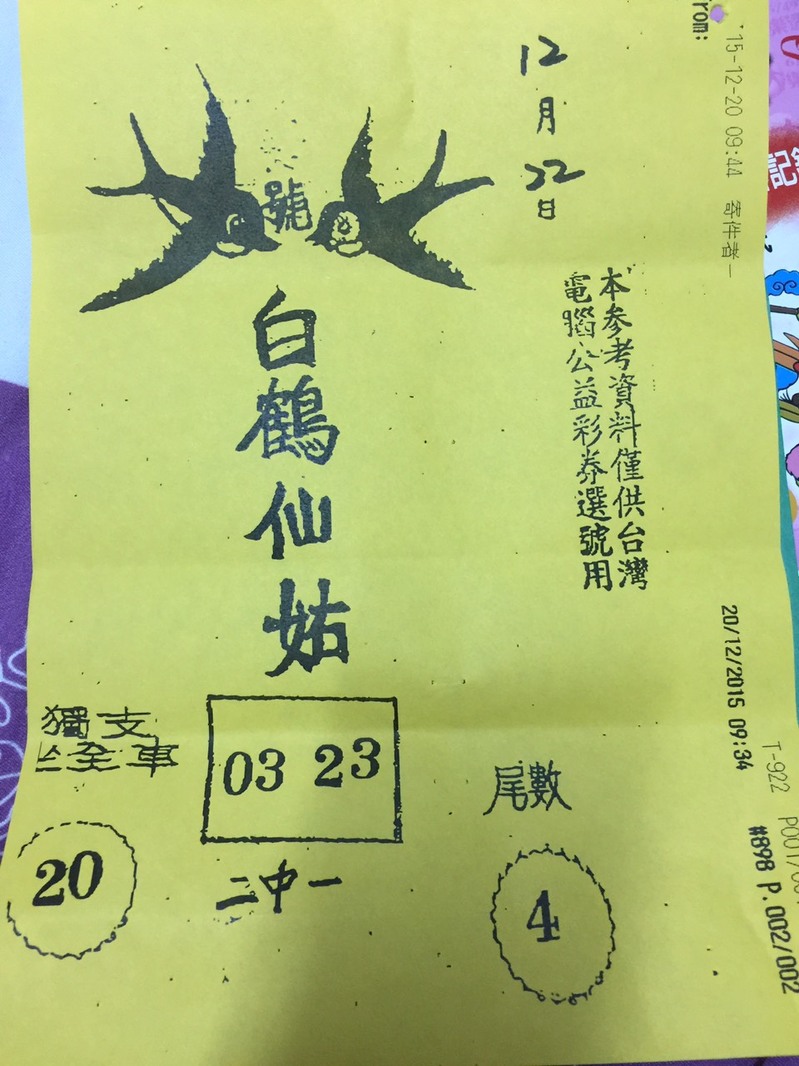 12
月
22
日
號
白鶴仙姑
本參考資料僅供台灣
電腦公益彩券選號用
獨支
全車
20
03 23
二中一
尾數
4
rom:
'15-12-20 09:44 寄件者-
20/12/2015 09:34
T-922 P001/
#898 P.002/002
記